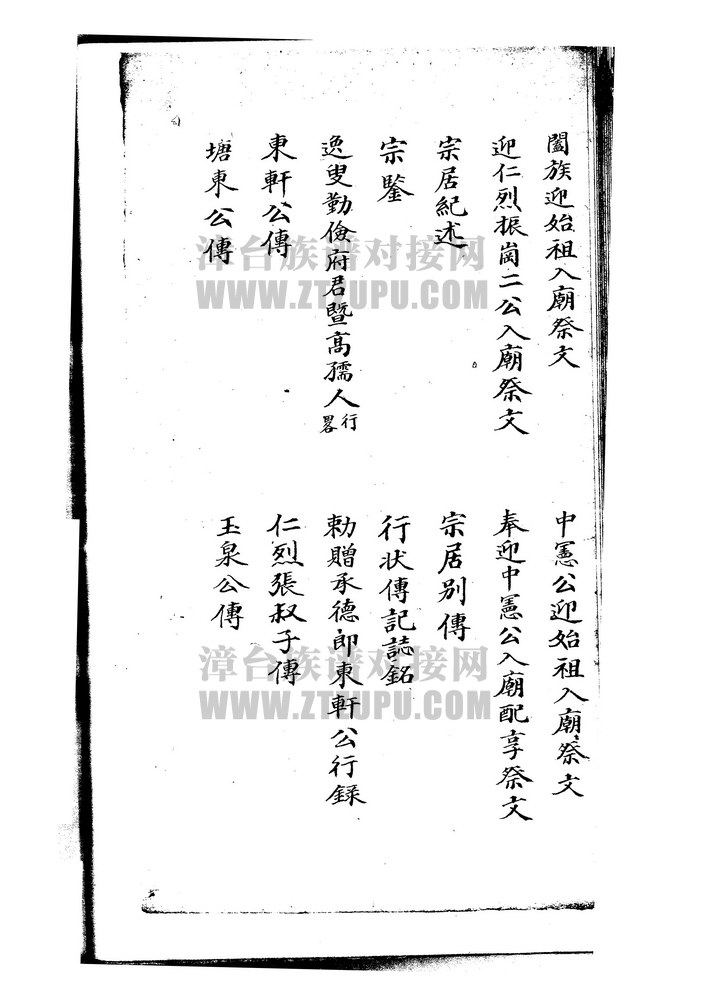 闔族迎始祖入廟祭文
中憲公迎始祖入廟祭文
迎仁烈振崗二公入廟祭文
奉迎中憲公入廟配享祭文
宗居紀述
宗居别傳
宗鑒
行状傳記誌銘
逸叟勤儉府君暨高孺人行畧
勅贈承德郎東軒公行録
東軒公傳
仁烈張叔子傳
塘東公傳
玉泉公傳
漳台族谱对接网
WWW.ZTZUPU.COM
漳台族谱对接网
WWW.ZTZUPU.COM